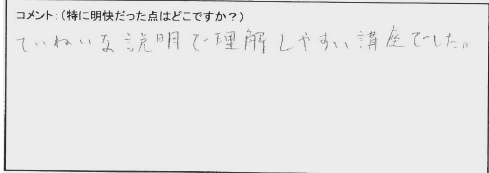 コメント:(特に明快だった点はどこですか?)
ていねいな説明で理解しやすい講座でした。